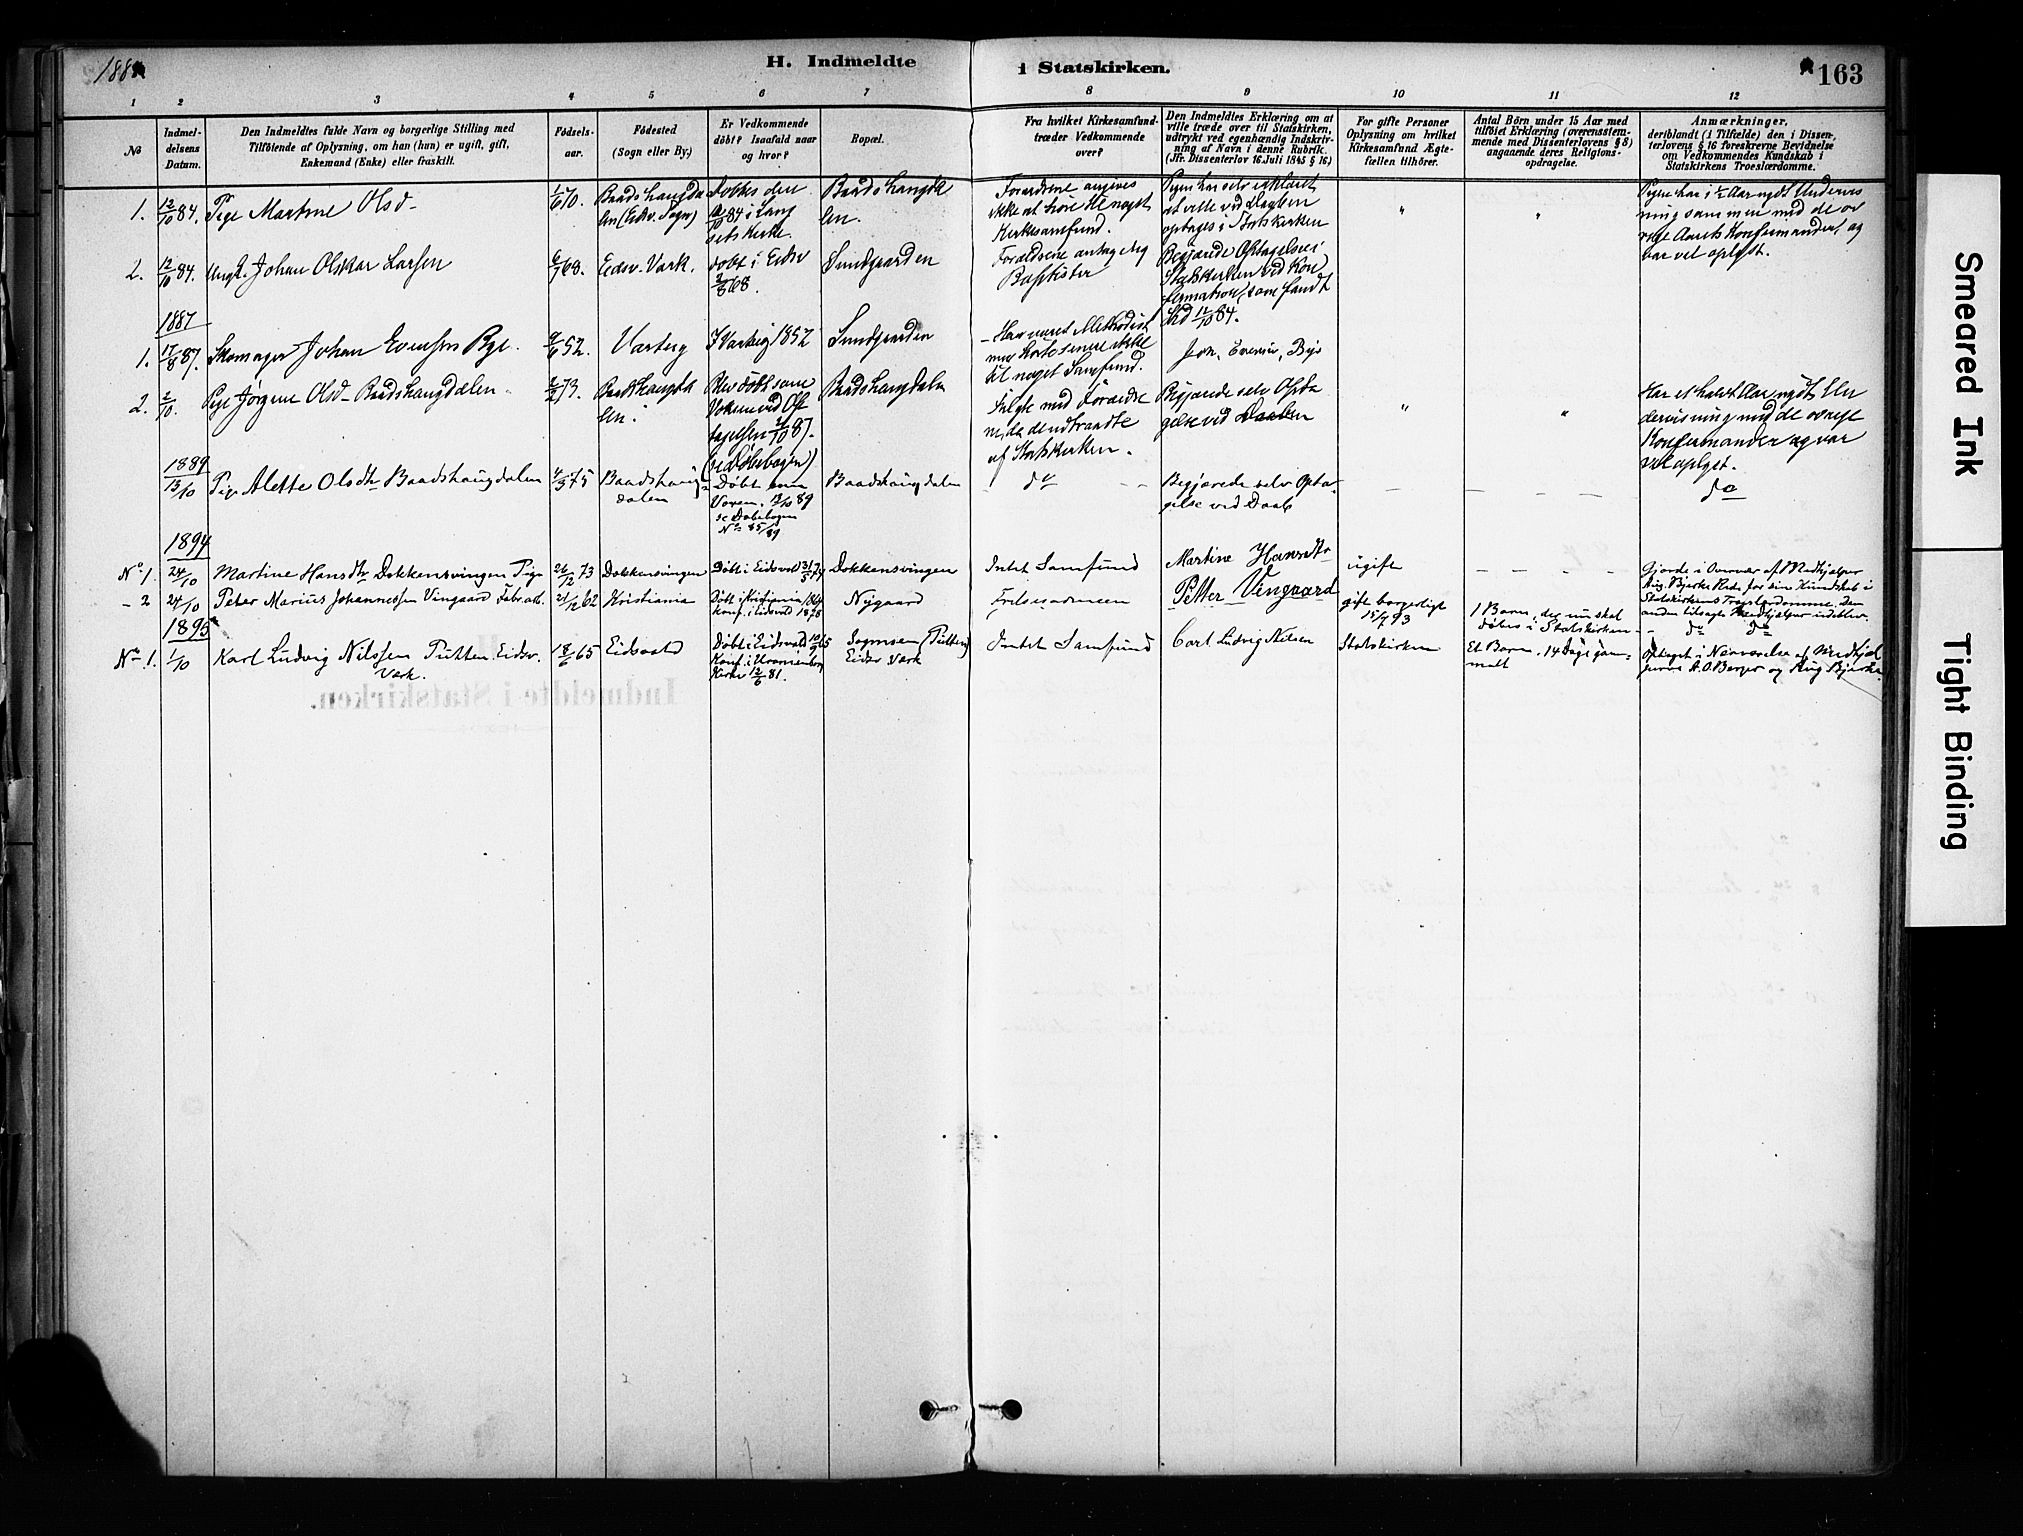 H. Indmeldte i Statskirken.
163
1 2 3 4 5 6 7 8 9 10 11 12
№
Indmel-
delsens
Datum.
Den Indmeldtes fulde Navn og borgerlige Stilling med
Tilföiende af Oplysning, om han (hun) er ugift, gift,
Enkemand (Enke) eller fraskilt.
Födsels-
aar.
Födested
(Sogn eller By.)
Er Vedkommende
döbt? Isaafald naar
og hvor?
Bopæl.
Fra hvilket Kirkesamfund
træder Vedkommende
over?
Den Indmeldtes Erklæring om at
ville træde over til Statskirken,
udtrykt ved egenhændig Indskriv-
ning af Navn i denne Rubrik.
(Jfr. Dissenterlov 16 Juli 1845 § 16)
For gifte Personer
Oplysning om hvilket
Kirkesamfund Ægte-
fællen tilhörer.
Antal Börn under 15 Aar med
tilföiet Erklæring (overensstem-
mende med Dissenterlovens § 8)
angaaende deres Religions-
opdragelse.
Anmærkninger,
deriblandt (i Tilfælde) den i Dissen-
terlovens § 16 foreskrevne Bevidnelse
om Vedkommendes Kundskab i
Statskirkens Troeslærdomme.
1. 12/10 84. Pige Martine Olsd
1/6 70.
Baadshaugda
len (Eidsv. Sogn)
Döbtes den
12/10 84 i Lang
sets Kirke.
Baadshaugda
len.
Forældrene angives
ikke at höre til noget
Kirkesamfund.
Pigen har selv erklæret
at ville ved Daaben
optages i Statskirken
" "
Pigen har i ½ Aar nydt Undervis
ning sammen med de öv
rige Aarets Konfirmander, og
var vel oplyst.
2. 12/10 84. Ungk. Johan Olskar Larsen
6/7 68. Eidsv. Værk.
döbt i Eidsv
2/8 68.
Sundgaarden
Forældrene antagelig
Baptister
Begjærede Optagelse i
Statskirken ved Kon
firmation, som fandt
Sted 12/10 84.
1887
1. 17/8 87. Skomager Johan Evensen Bye.
9/6 52. Varteig I Varteig 1852 Sundgaarden
- Har været Methodist
men hörte senere ikke
til noget Samfund.
Joh. Evensen, Bye
2. 2/10. Pige Jörgine Olsd Baadshaugdalen.
2/2 73.
Baadshaugda
len.
Blev döbt som
Voxen ved Op
tagelsen 2/10 87.
(se Döbebogen)
Baadshaugdalen
Fulgte med Forældre
ne, da de udtraadte
af Statskirken.
Begjærede selv Opta
gelse ved Daaben
" "
Har et halvt Aar nydt Un
dervisning med de övrige
Konfirmander og var
vel oplyst.
1889
13/10 Pige Alette Olsdtr Baadshaugdalen
4/3 75
Baadshaug=
dalen
Döbt som
Voxen. 13/10 89
se Döbebogen
No 85/89
Baadshaugdalen
- do - -
Begjærede selv Opta-
gelse ved Daab
do
1894
No 1. 24/10 Martine Hansdtr Dokkensvingen Pige
26/12 73 Dokkensvingen
Döbt i Eidsvold
Dokkensvingen
Intet Samfund
Martine Hansdtr
ugift
Gjorde i Overvær af Medhjælper
Aug. Bjerke Rede for sin Kundskab i
Statskirkens Troeslærdomme. Den
anden tilsagte Medhjælper udeblev.
- 2 24/10 Peter Marius Johannessen Vingaard Fabr.arb.
21/12 62 Kristiania
Döbt i Kristiania
Konf. i Eidsvold 1878
Nygaard
Frelsesarmeen
Petter Vingaard
gift borgerligt
15/7 93
1 Barn, der nu skal
döbes i Statskirken
do do
1895
No 1. 1/10 Karl Ludvig Nilssen Putten. Eidsv.
Værk.
18/6 65 Eidsvold
Döbt i Eidsvold
Kirke 12/6 81.
Sogmoen (Putten)
Eidsv Værk
Intet Samfund
Carl Ludvig Nilsen
Statskirken
Et Barn. 14 Dage gam-
malt
Optaget i Nærværelse af Medhjæl
perne A. O. Berger og Aug Bjerke
Indmeldte i Statskirken.
Smeared Ink
Tight Binding